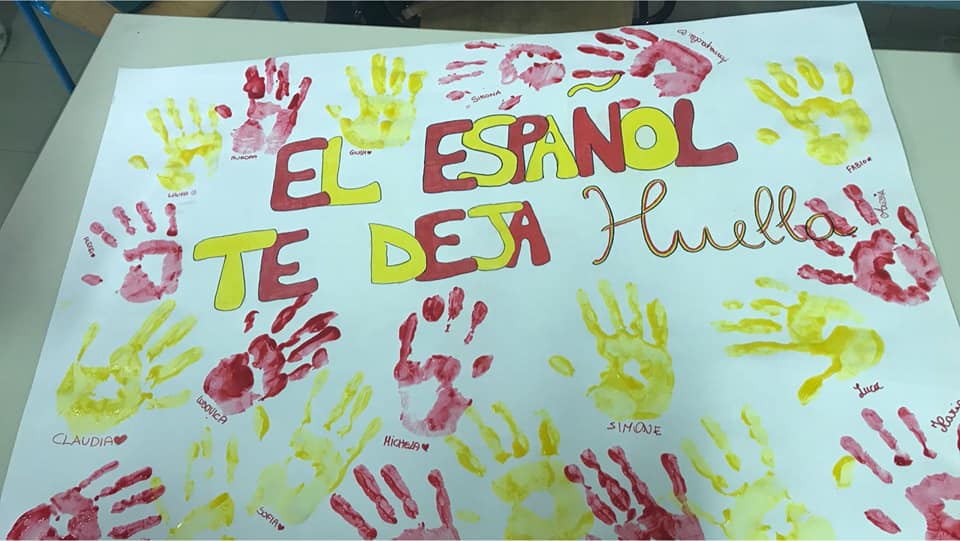 SIMONA
EL ESPAÑOL
LAURA
AURORA
GIUSI
FABIO
TE DEJA Huella
LUDOVICA
MICHELA
CLAUDIA
SIMONE
Luca
Ilaria
SOFIA